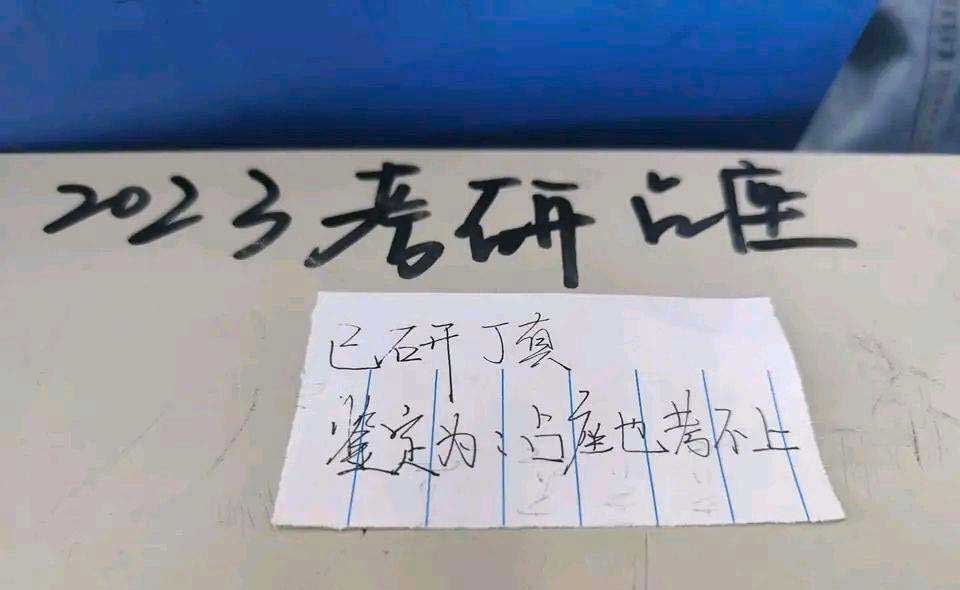 2023考研占座
已研丁真
鉴定为:占座也考不上